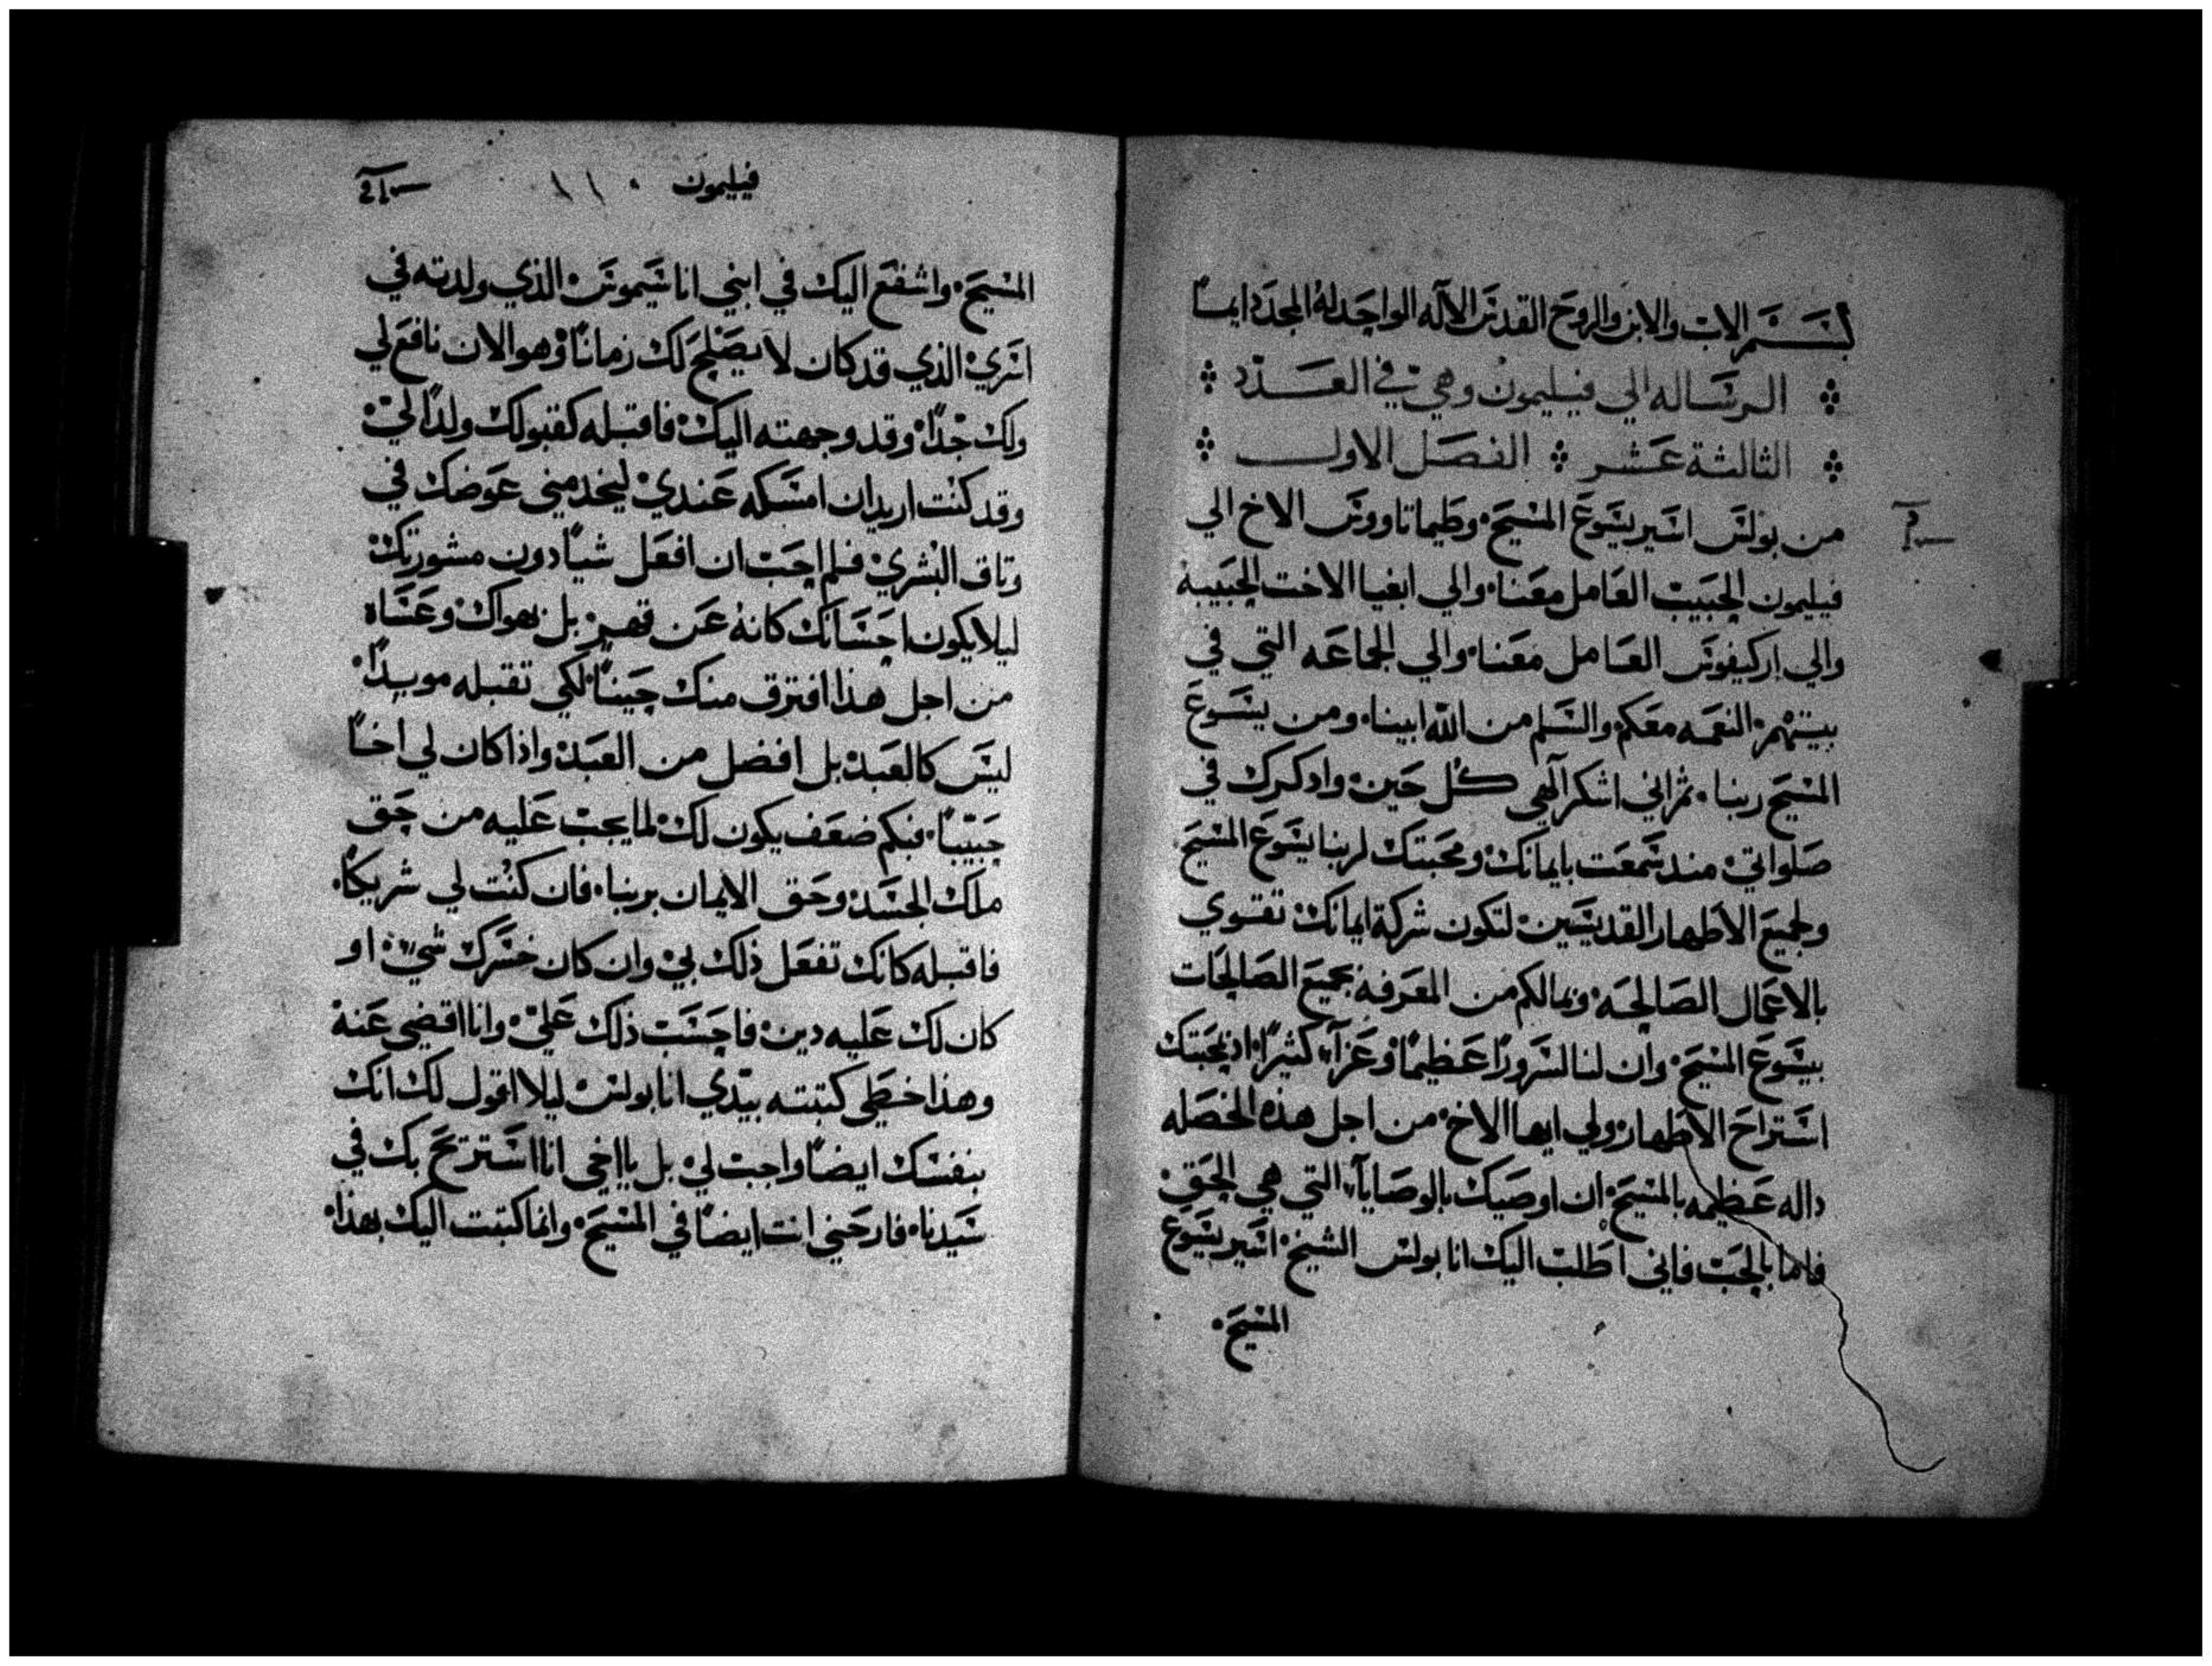 بسم الاب والابن والروح القدس الاله الواحد له المجد دايماً
الرساله الي فيليمون وهي في العدد
الثالثة عشر الفصل الاول
من بولس اسير يسوع المسيح وطيماتاووس الاخ الي
فيليمون الحبيب العامل معنا والي ابفيا الاخت الحبيبه
والي اركيفوس العامل معنا والي الجماعه التي في
بيتهم النعمه معكم والسلم من الله ابينا ومن يسوع
المسيح ربنا ثم اني اشكر آلهي كل حين وادكرك في
صلواتي مند سمعت بايمانك ومحبتك لربنا يسوع المسيح
ولجميع الاطهار القديسين لتكون شركة ايمانك تقوي
بالاعمال الصالحه وبمالكم من المعرفه بجميع الصالحات
بيسوع المسيح وان لنا لسروراً عظيماً وعزآء كثيراً اذ بمحبتك
استراح الاطهار ولي ايها الاخ من اجل هذه الخصله
داله عظيمه بالمسيح ان اوصيك بالوصايآء التي هي الحق
فاما بالحب فاني اطلب اليك انا بولس الشيخ اسير يسوع
المسيح
فيليمون
المسيح واشفع اليك في ابني اناسيموس الذي ولدته في
اسري الذي قد كان لا يصلح لك زماناً وهو الان نافع لي
ولك جداً وقد وجهته اليك فاقبله كقبولك ولداً لي
وقد كنت اريد ان امسكه عندي ليخدمني عوضك في
وتاق البشري فلم احب ان افعل شياً دون مشورتك
ليلا يكون احسانك كانه عن قهر بل بهواك وعساه
من اجل هذا افترق منك حيناً لكي تقبله موبداً
ليس كالعبد بل افضل من العبد واذا كان لي اخاً
حبيباً فبكم ضعف يكون لك لما يجب عليه من حق
ملك الجسد وحق الايمان بربنا فان كنت لي شريكاً
فاقبله كانك تفعل ذلك بي وان كان خسرك شي او
كان لك عليه دين فاحسب ذلك علي وانا اقضي عنه
وهذا خطي كتبته بيدي انا بولس ليلا اقول لك انك
بنفسك ايضاً واجب لي بل يا اخي انا استريح بك في
سيدنا فارحني انت ايضاً في المسيح وانما كتبت اليك بهذا